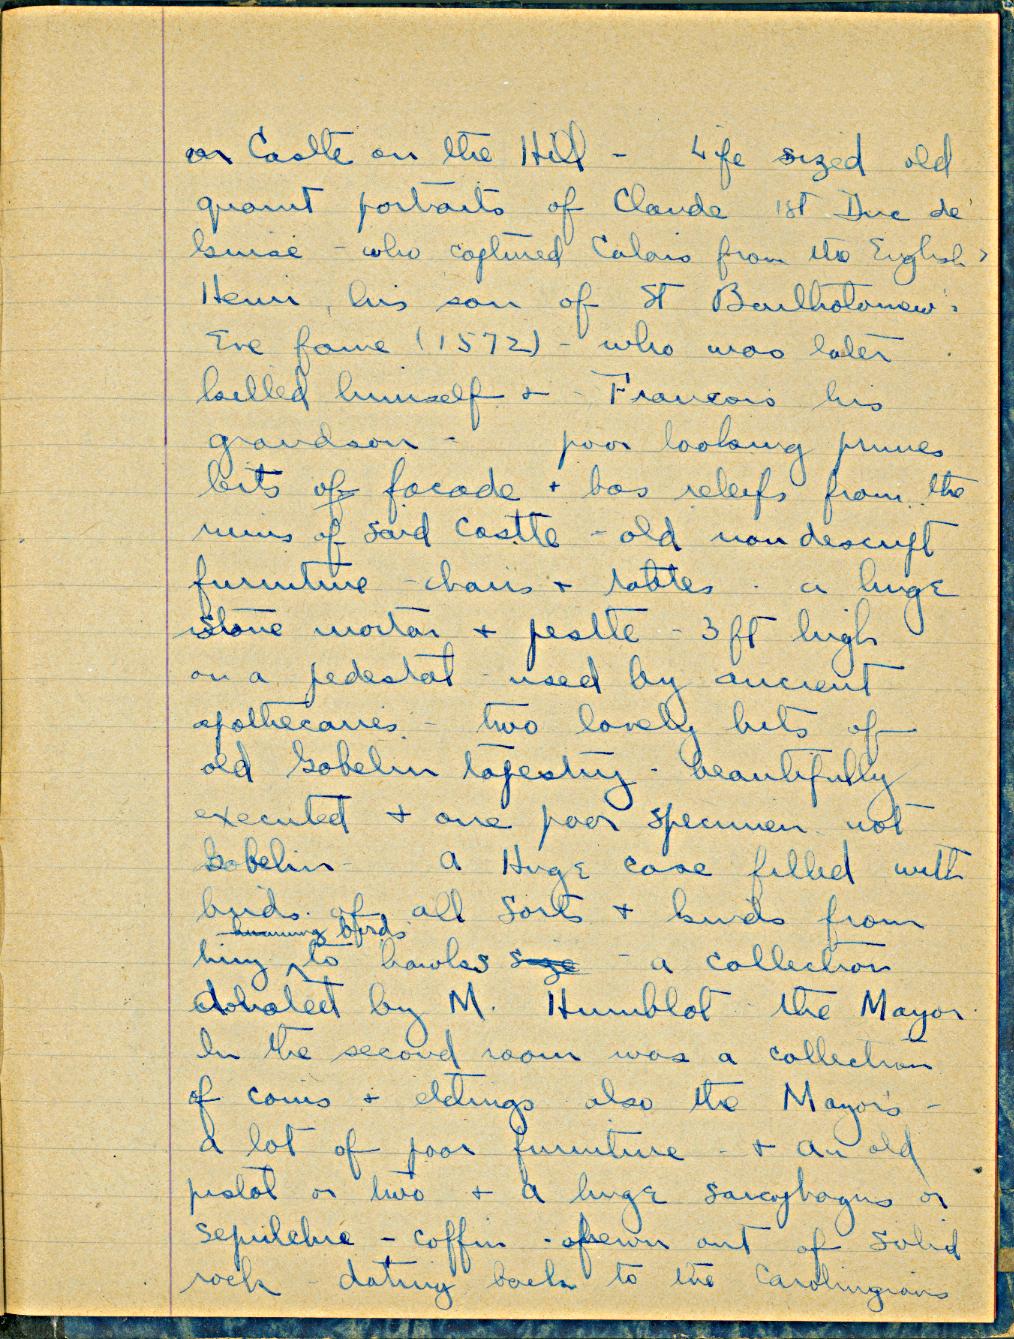 or Castle on the Hill - Life sized old
quaint portraits of Claude 1st Duc de
Guise - who captured Calais from the English?
Henri, his son of St Bartholomew's
Eve fame (1572) - who was later
killed himself & - Francois his
grandson - poor looking prunes
bits of facade & bas releifs from the
ruins of said Castle - old non descript
furniture - chairs & tables - a huge
stone mortar & pestle - 3 ft high
on a pedestal - used by ancient
apothecaries - two lovely bits of
old Gobelin tapestry - beautifully
executed & one poor specimen not
Gobelin - a Huge case filled with
birds of all Sorts & kinds from
humming birds
to hawks size - a collection
donated by M. Humblot the Mayor.
In the second room was a collection
of coins & etchings also the Mayor's -
a lot of poor furniture - & an old
pistol or two & a huge sarcophagus or
sepulchre - coffin - hewn out of Solid
rock - dating back to the Carolingians